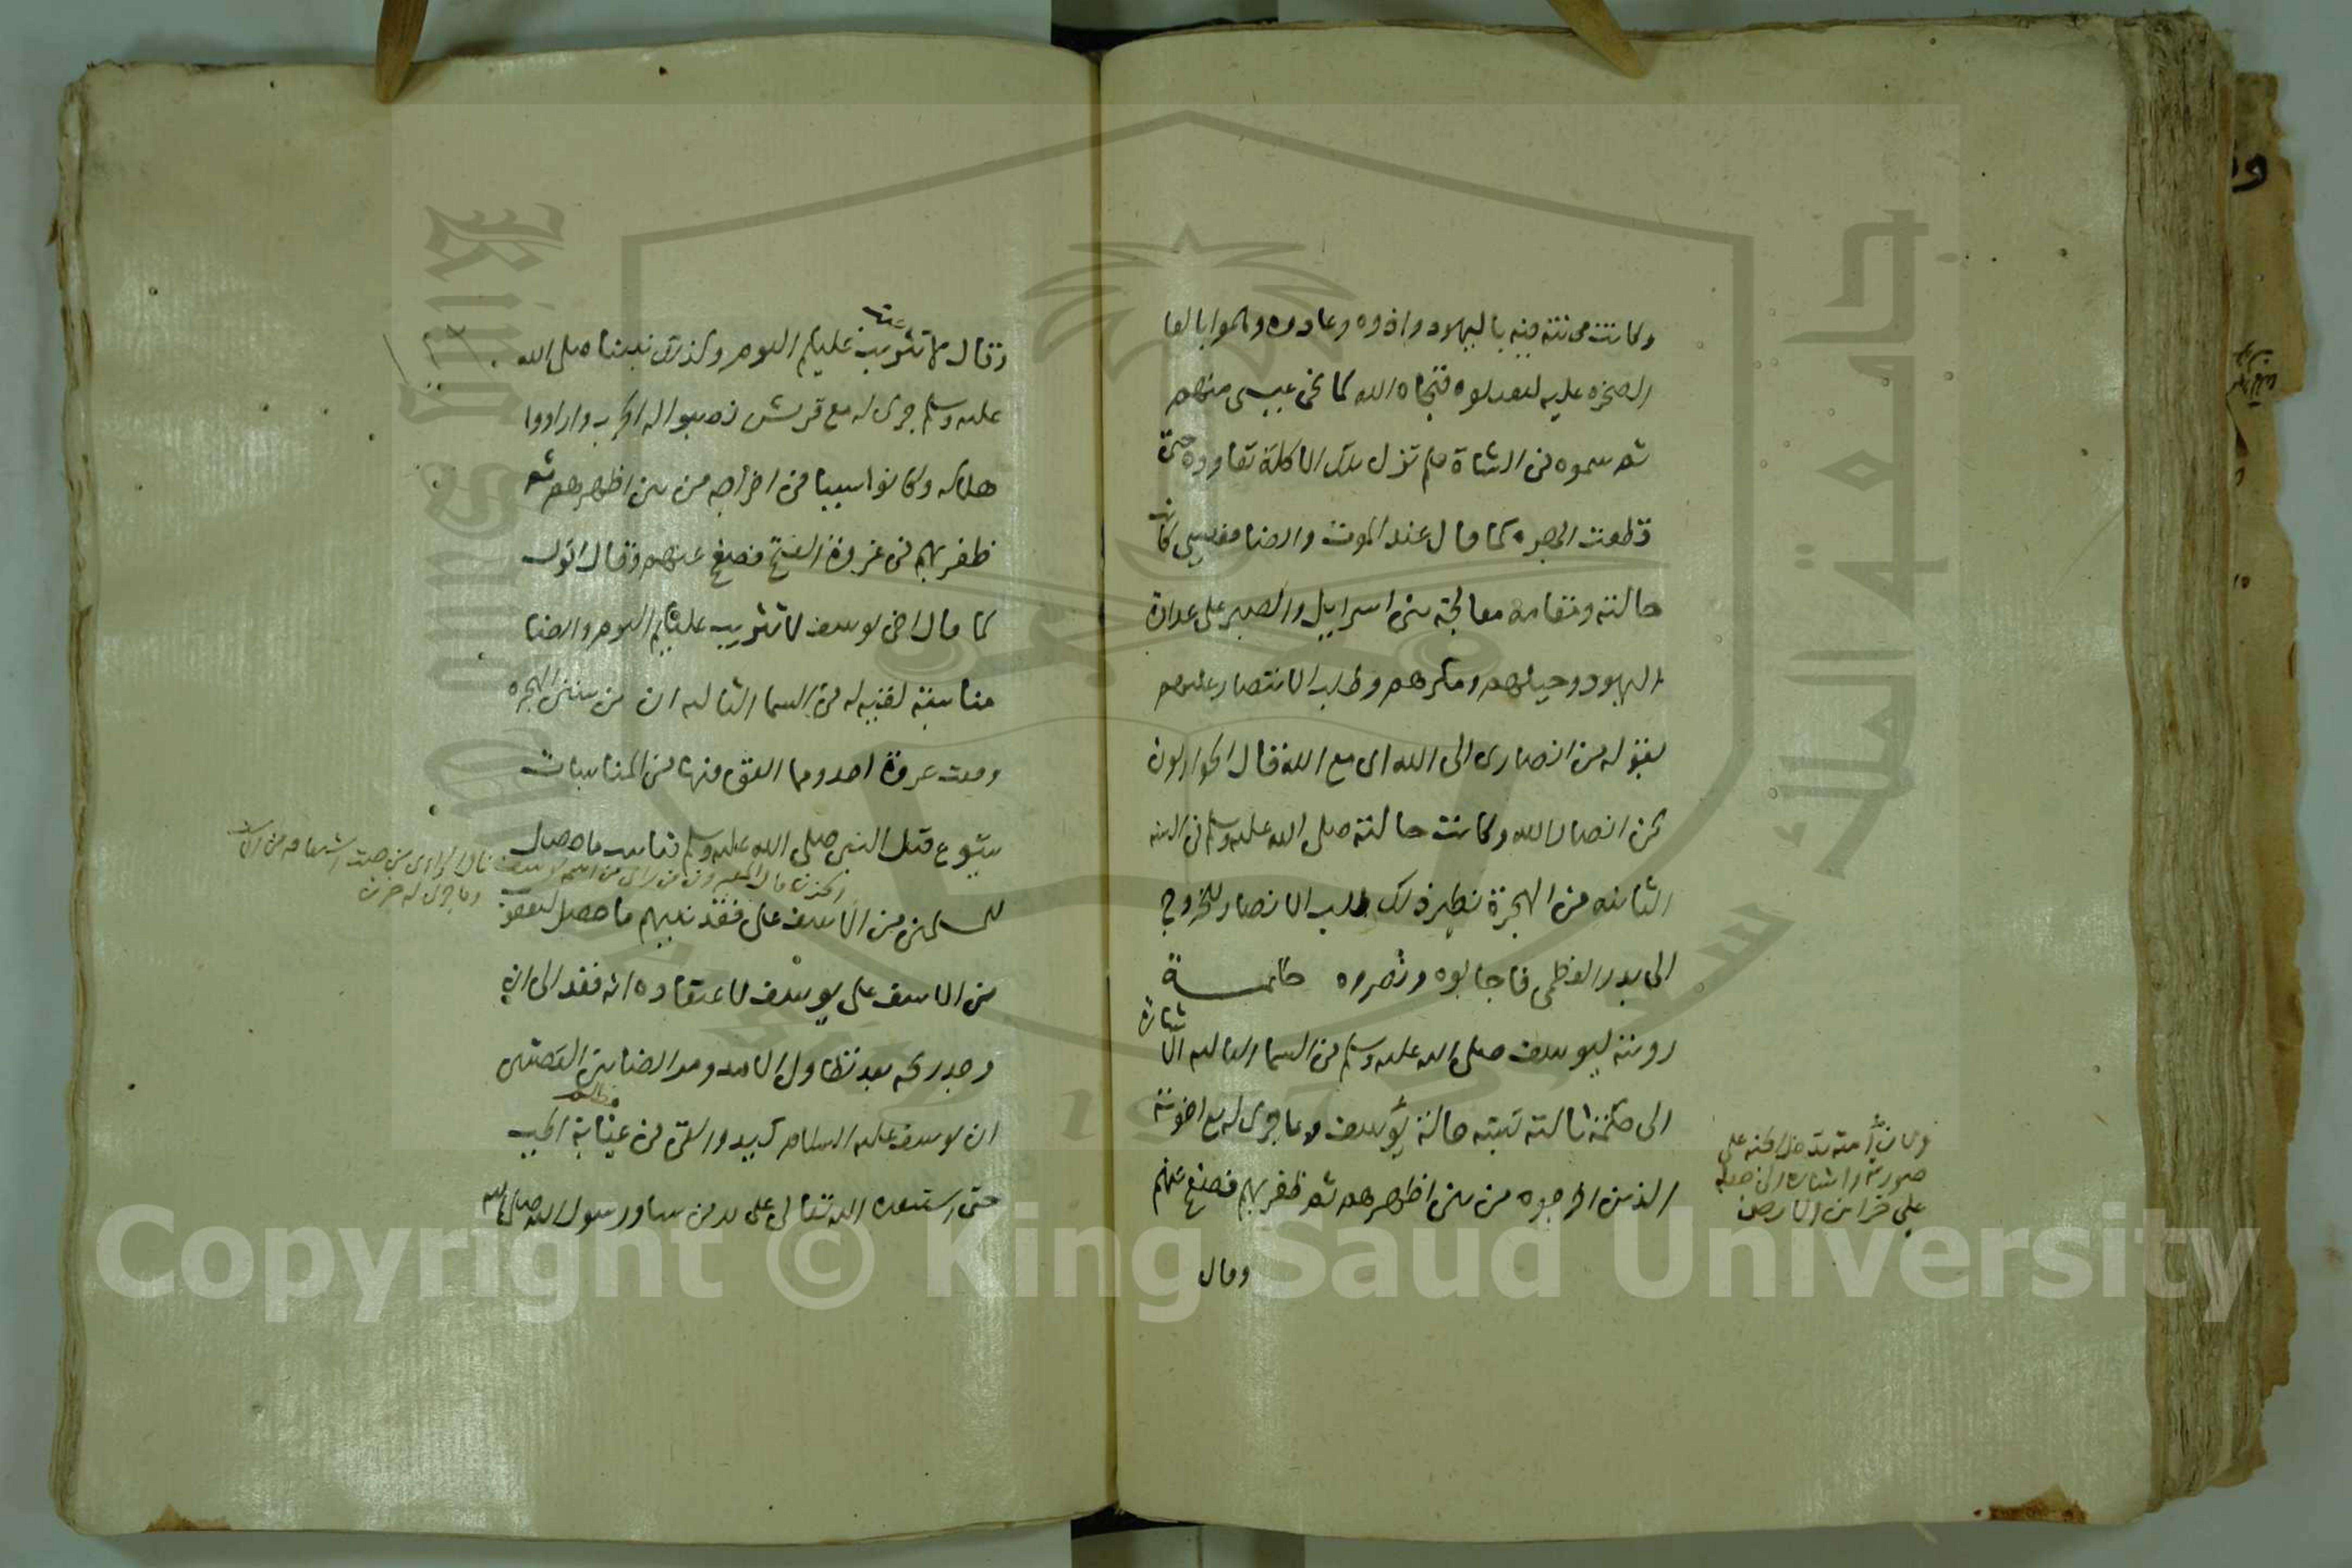 وكانت محنته فيه باليهود واذوه وعادوه وهموا بالقا
الصخره عليه ليقتلوه فنجاه الله كما نجى عيسى منهم
ثم سموه في الشاة فلم تزل تلك الاكلة تعاوده حتى
قطعت ابهره كما قال عند الموت وايضا فعيسى كانت
حالته ومقامه معالجة بني اسرايل والصبر على عداوة
اليهود وحيلهم ومكرهم وطلب الانتصار عليهم
بقوله من انصارى الى الله اى مع الله قال الحواريون
نحن انصار الله وكانت حالته صلى الله عليه وسلم في السنه
الثانيه من الهجرة نظير ذلك طلب الانصار للخروج
الى بدر العظمى فاجابوه ونصروه خاتمـــة
رويته ليوسف صلى الله عليه وسلم في السما الثالثه اشارة
الى حكمة ثالثه تشبه حالة يوسف وما جرى له مع اخوته
الذين اخرجوه من بين اظهرهم ثم ظفر بهم فصفح عنهم
وقال
وبان امته تدخل الجنه على
صورته واشارة الى
على خزاين الارض
فقال لا تثريب عليكم اليوم وكذلك نبينا صلى الله
عليه وسلم جرى له مع قريش نصبوا له الحرب وارادوا
هلاكه وكانوا سببا في اخراجه من بين اظهرهم ثم
ظفر بهم في غزوة الفتح فصفح عنهم وقال اقول
كما قال اخي يوسف لا تثريب عليكم اليوم وايضا
مناسبة لقيه له في السما الثالثه ان من سنين الهجره
وقعت غزوة احد ومما اتفق فيها من المناسبات
شيوع قتل النبي صلى الله عليه وسلم فناسب ما حصل
للمسلمين من الاسف على فقد نبيهم ما حصل ليعقوب
من الاسف على يوسف لاعتقاده انه فقد الى ان
وجد ريحه بعد تطاول الامد ومن ايضا بين القصتين
ان يوسف عليه السلام كيد والقى في غيابة الجب
حتى استنقذه الله تعالى على يد من شا ورسول الله صلى الله
Copyright © King Saud University
King Saud University
جامعة الملك سعود
1957